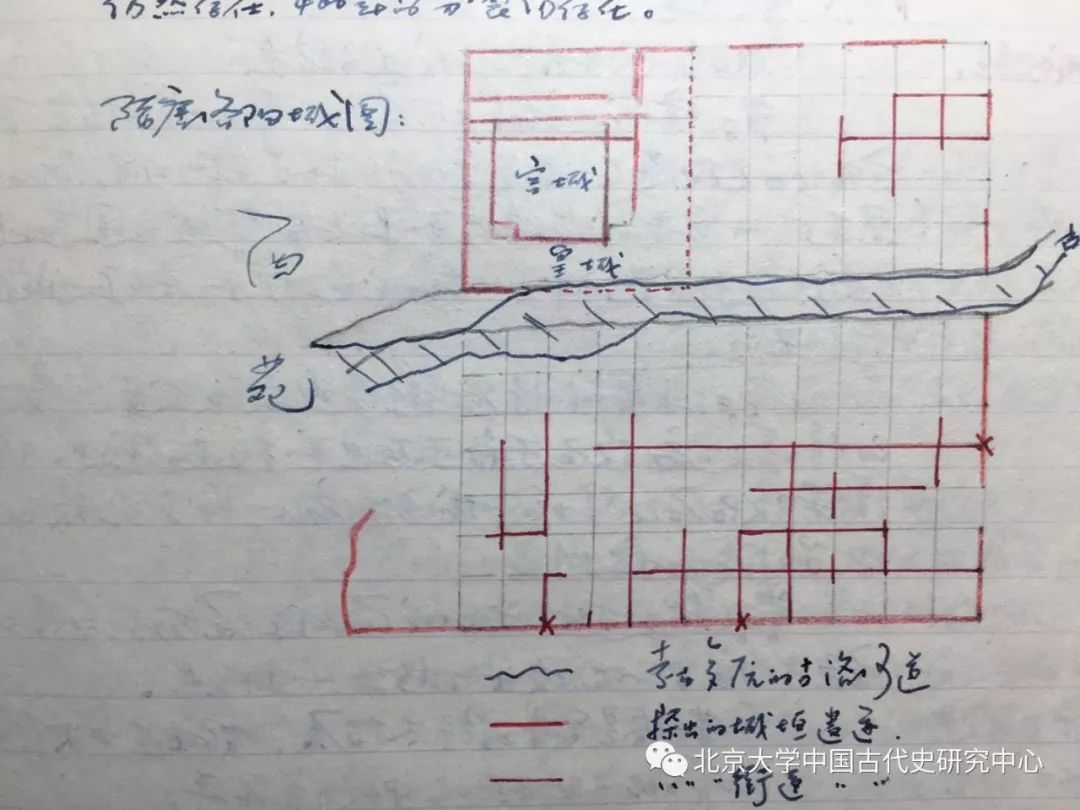 仍然存在,
隋唐洛阳城图:
宫城
皇城
西
苑
古
考古复原的古洛河道
探出的城垣遗迹.
〃〃〃街道〃〃
北京大学中国古代史研究中心